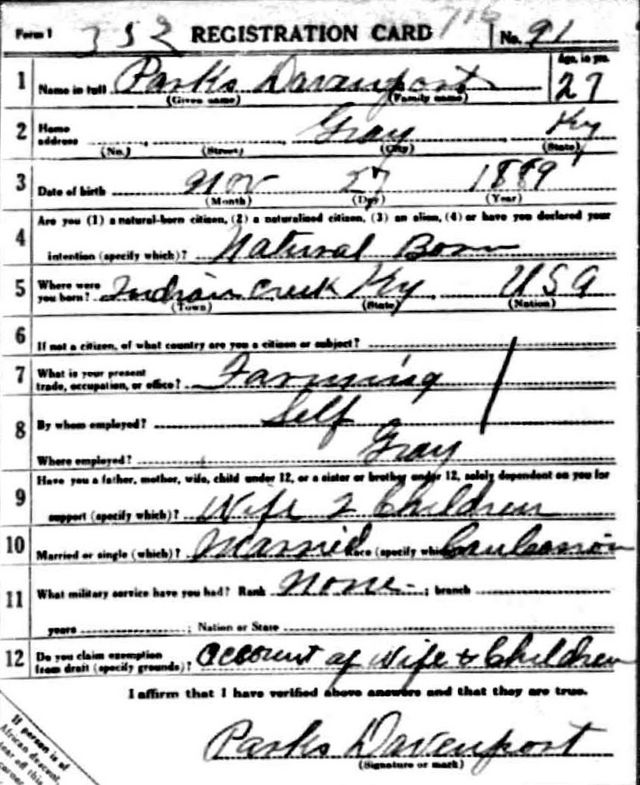 Form 1 352 REGISTRATION CARD No. 91
1 Name in full Parks Davenport Age, in yrs. 27
(Given name) (Family name)
2 Home address Gray Ky
(No.) (Street) (City) (State)
3 Date of birth Nov 27 1889
(Month) (Day) (Year)
4 Are you (1) a natural-born citizen, (2) a naturalized citizen, (3) an alien, (4) or have you declared your
intention (specify which)? Natural Born
5 Where were you born? Indian Creek Ky, USA
(Town) (State) (Nation)
6 If not a citizen, of what country are you a citizen or subject?
7 What is your present trade, occupation, or office? Farming
8 By whom employed? Self
Where employed? Gray
9 Have you a father, mother, wife, child under 12, or a sister or brother under 12, solely dependent on you for
support (specify which)? Wife 2 Children
10 Married or single (which)? Married Race (specify which)?
11 What military service have you had? Rank None ; branch
years ; Nation or State
12 Do you claim exemption from draft (specify grounds)? Account of Wife & Children
I affirm that I have verified above answers and that they are true.
Parks Davenport
(Signature or mark)
If person is of
African descent,
tear off this
corner